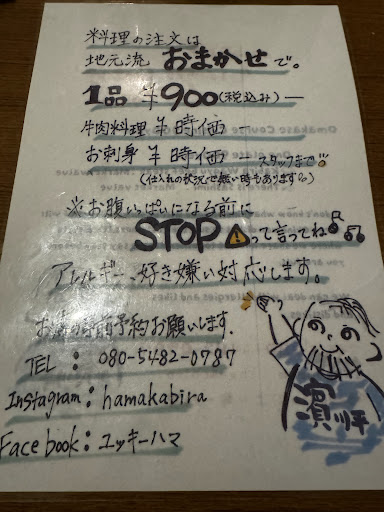 料理の注文は
地元流 おまかせで。
1品 ¥900(税込み)ー
牛肉料理 ¥ 時価 ー
お刺身 ¥ 時価 ー スタッフまで
(仕入れの状況で無い時もあります)
※お腹いっぱいになる前に
STOPって言ってね♪♫
アレルギー、好き嫌い対応します。
前予約お願いします.
TEL : 080-5482-0787
Instagram : hamakabira
Facebook : ユッキーハマ
濱